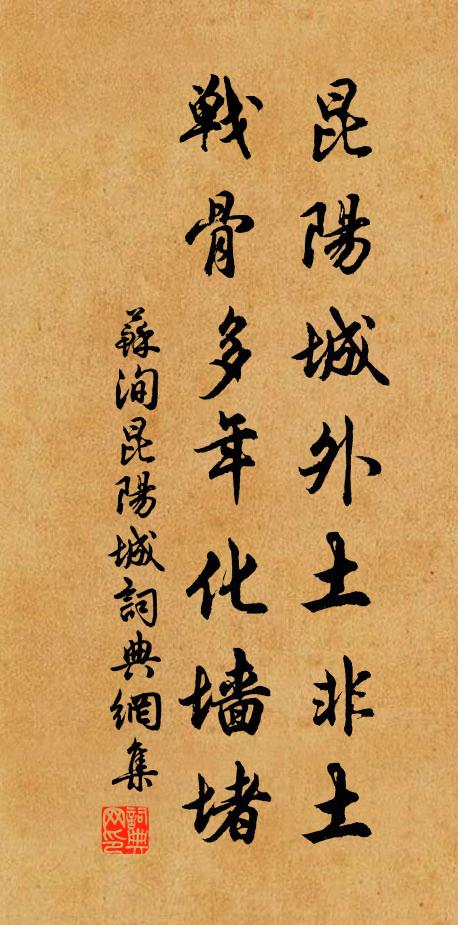 昆陽城外土非土
戦骨多年化墻堵
蘇洵昆陽城詞典網集
詞典網印